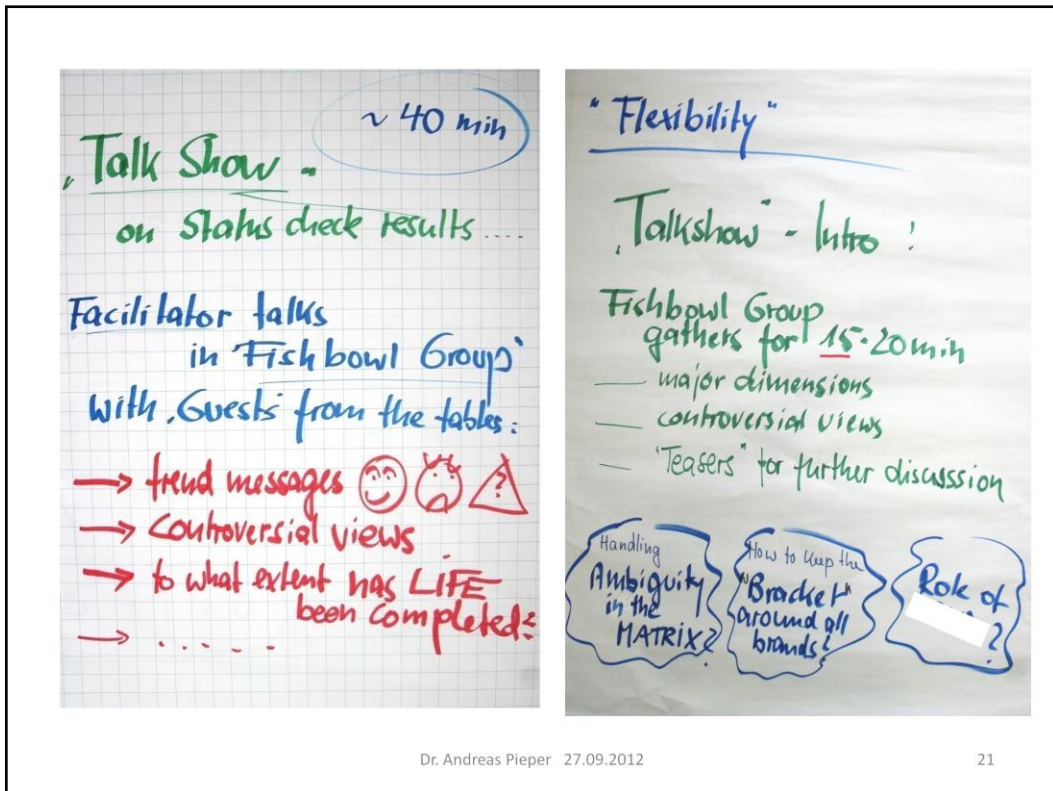 ~ 40 min
„Talk Show -
on Status check results ....
Facilitator talks
in 'Fishbowl Group'
with 'Guests' from the tables:
→ trend messages
?
→ controversial views
→ to what extent has LIFE
been completed?
→ . . . . .
"Flexibility"
„Talkshow" - Intro !
Fishbowl Group
gathers for 15-20 min
— major dimensions
— controversial views
— "Teasers" for further discussion
Handling
Ambiguity
in the
MATRIX?
How to keep the
"Bracket"
around all
brands?
Role of
?
Dr. Andreas Pieper 27.09.2012
21